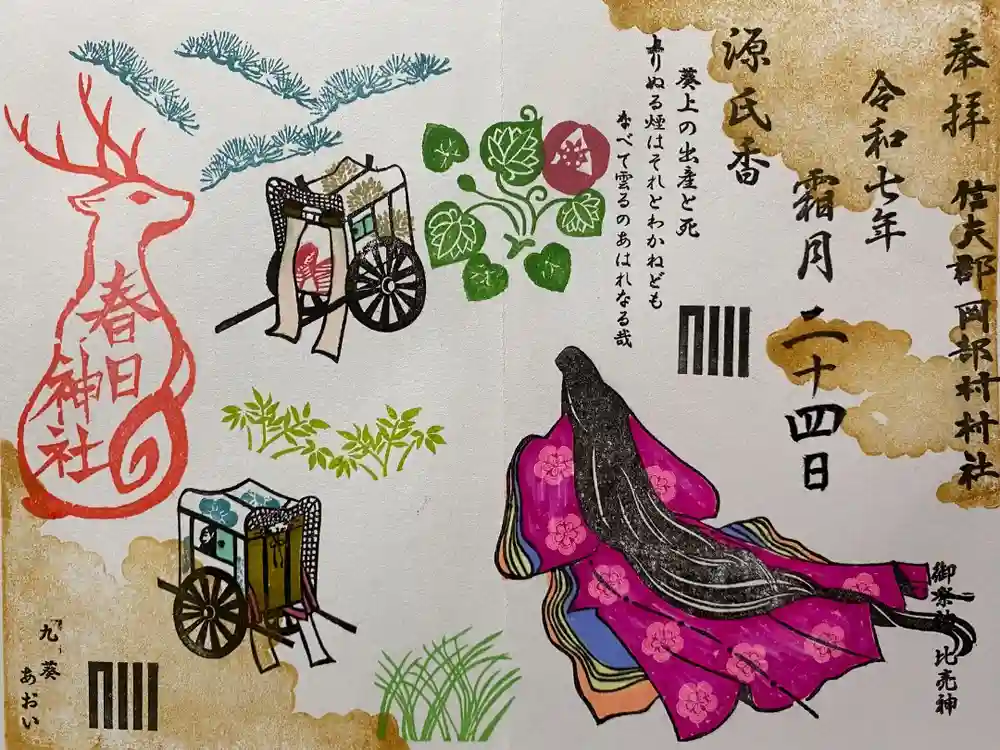 奉拝 信夫郡岡部村村社
令和七年
霜月二十四日
源氏香
葵上の出産と死
のりぬる煙はそれとわかねども
なべて雲ゐのあはれなる哉
御祭神 比売神
春日
神社
九 葵
あおい